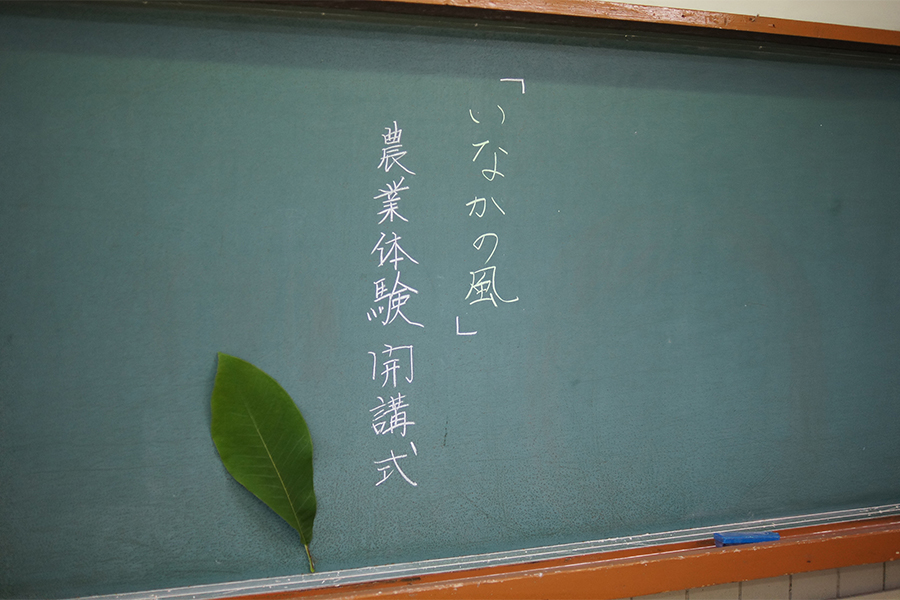 「いなかの風」
農業体験開講式